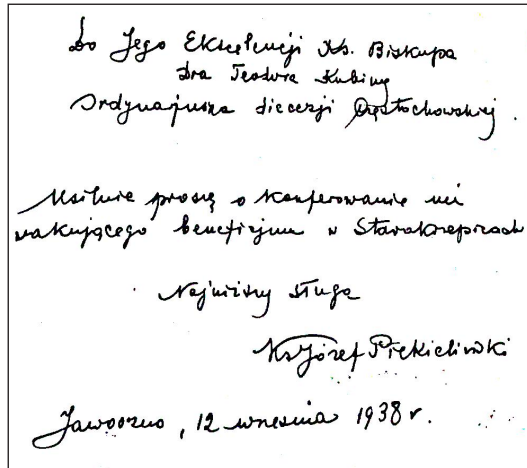 Do Jego Ekscelencji Ks. Biskupa
Dra Teodora Kubiny
Ordynariusza diecezji Częstochowskiej.
Usilnie proszę o konferowanie mi
wakującego beneficjum w Starokrzepicach
Najniższy sługa
Ks Józef Piekieliński
Jaworzno, 12 września 1938 r.